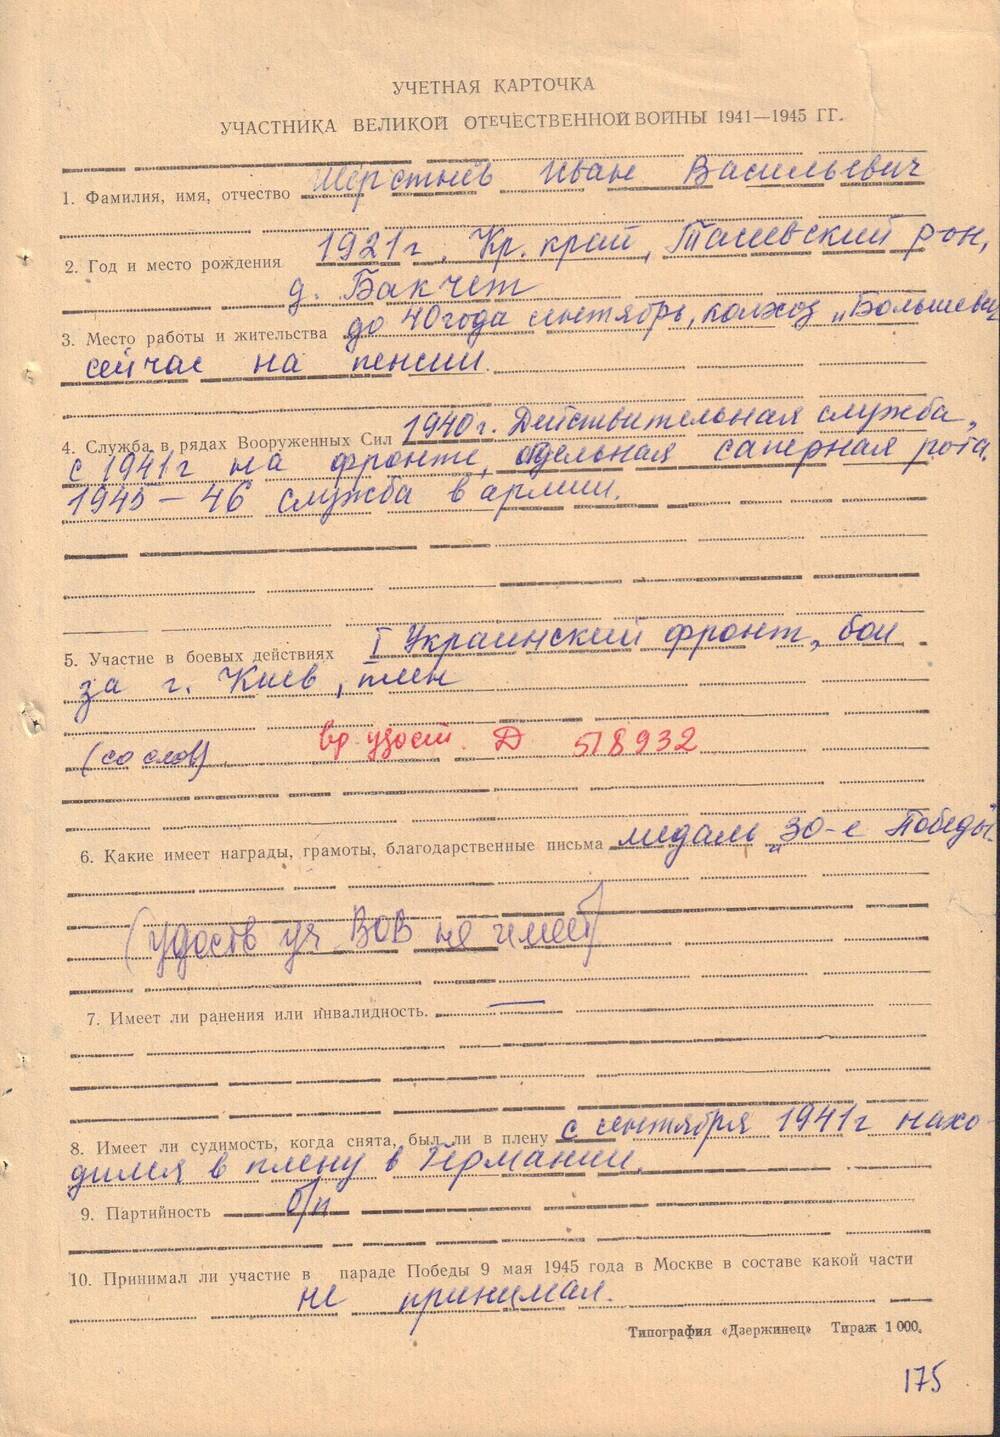 УЧЕТНАЯ КАРТОЧКА
УЧАСТНИКА ВЕЛИКОЙ ОТЕЧЕСТВЕННОЙ ВОЙНЫ 1941—1945 ГГ.
1. Фамилия, имя, отчество Шерстнёв Иван Васильевич
2. Год и место рождения 1921 г. Кр. край, Тасеевский р-он,
д. Бакчет
3. Место работы и жительства до 40 года сентябрь, колхоз „Большевик
сейчас на пенсии.
4. Служба в рядах Вооруженных Сил 1940 г. Действительная служба,
с 1941 г на фронте, отдельная саперная рота.
1945 – 46 служба в армии.
5. Участие в боевых действиях I Украинский фронт, бои
за г. Киев, плен
(со слов). вр. удост. Д 518932
6. Какие имеет награды, грамоты, благодарственные письма медаль „30-е Победы"
(удостов уч ВОВ не имеет)
7. Имеет ли ранения или инвалидность. —
8. Имеет ли судимость, когда снята, был ли в плену с сентября 1941 г нахо-
дился в плену в Германии.
9. Партийность б/п
10. Принимал ли участие в параде Победы 9 мая 1945 года в Москве в составе какой части
не принимал.
Типография «Дзержинец» Тираж 1 000.
175